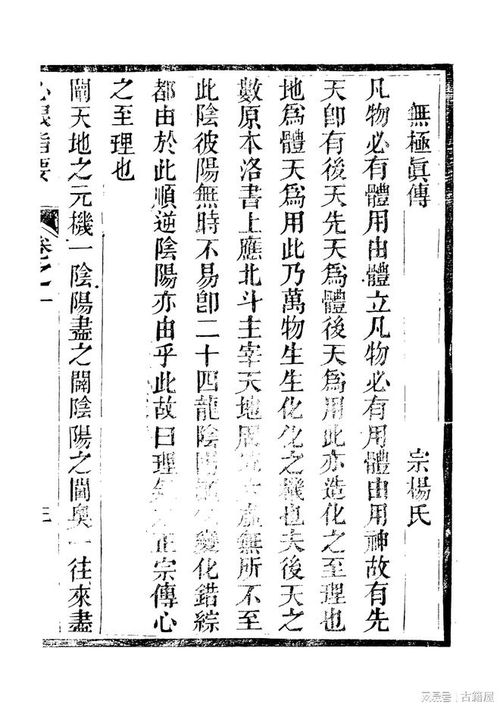 無極眞傳
宗楊氏
凡物必有體用由體立凡物必有用體由用神故有先
天卽有後天先天爲體後天爲用此亦造化之至理也
地爲體天爲用此乃萬物生生化化之機也夫後天之
數原本洛書上應北斗主宰天地周虛無所不至
此陰彼陽無時不易卽二十四龍陰陽變化錯綜
都由於此順逆陰陽亦由乎此故曰理氣正宗傳心
之至理也
闡天地之元機一陰陽盡之闢陰陽之閫奧一往來盡
心眼指要
卷之一
三
古籍屋